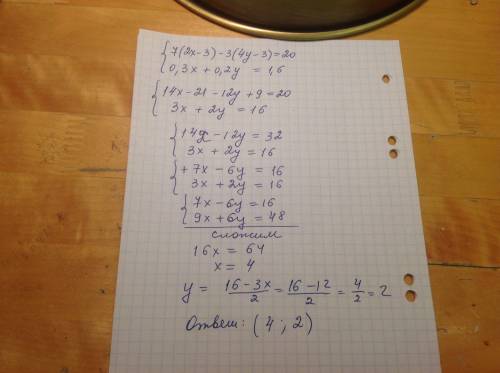 7(2x-3)-3(4y-3)=20
0,3x+0,2y = 1,6
14x-21-12y+9=20
3x+2y=16
14x-12y=32
3x+2y=16
+7x-6y=16
3x+2y=16
7x-6y=16
9x+6y=48
сложим
16x = 64
x = 4
y = (16-3x)/2 = (16-12)/2 = 4/2 = 2
Ответ: (4 ; 2)